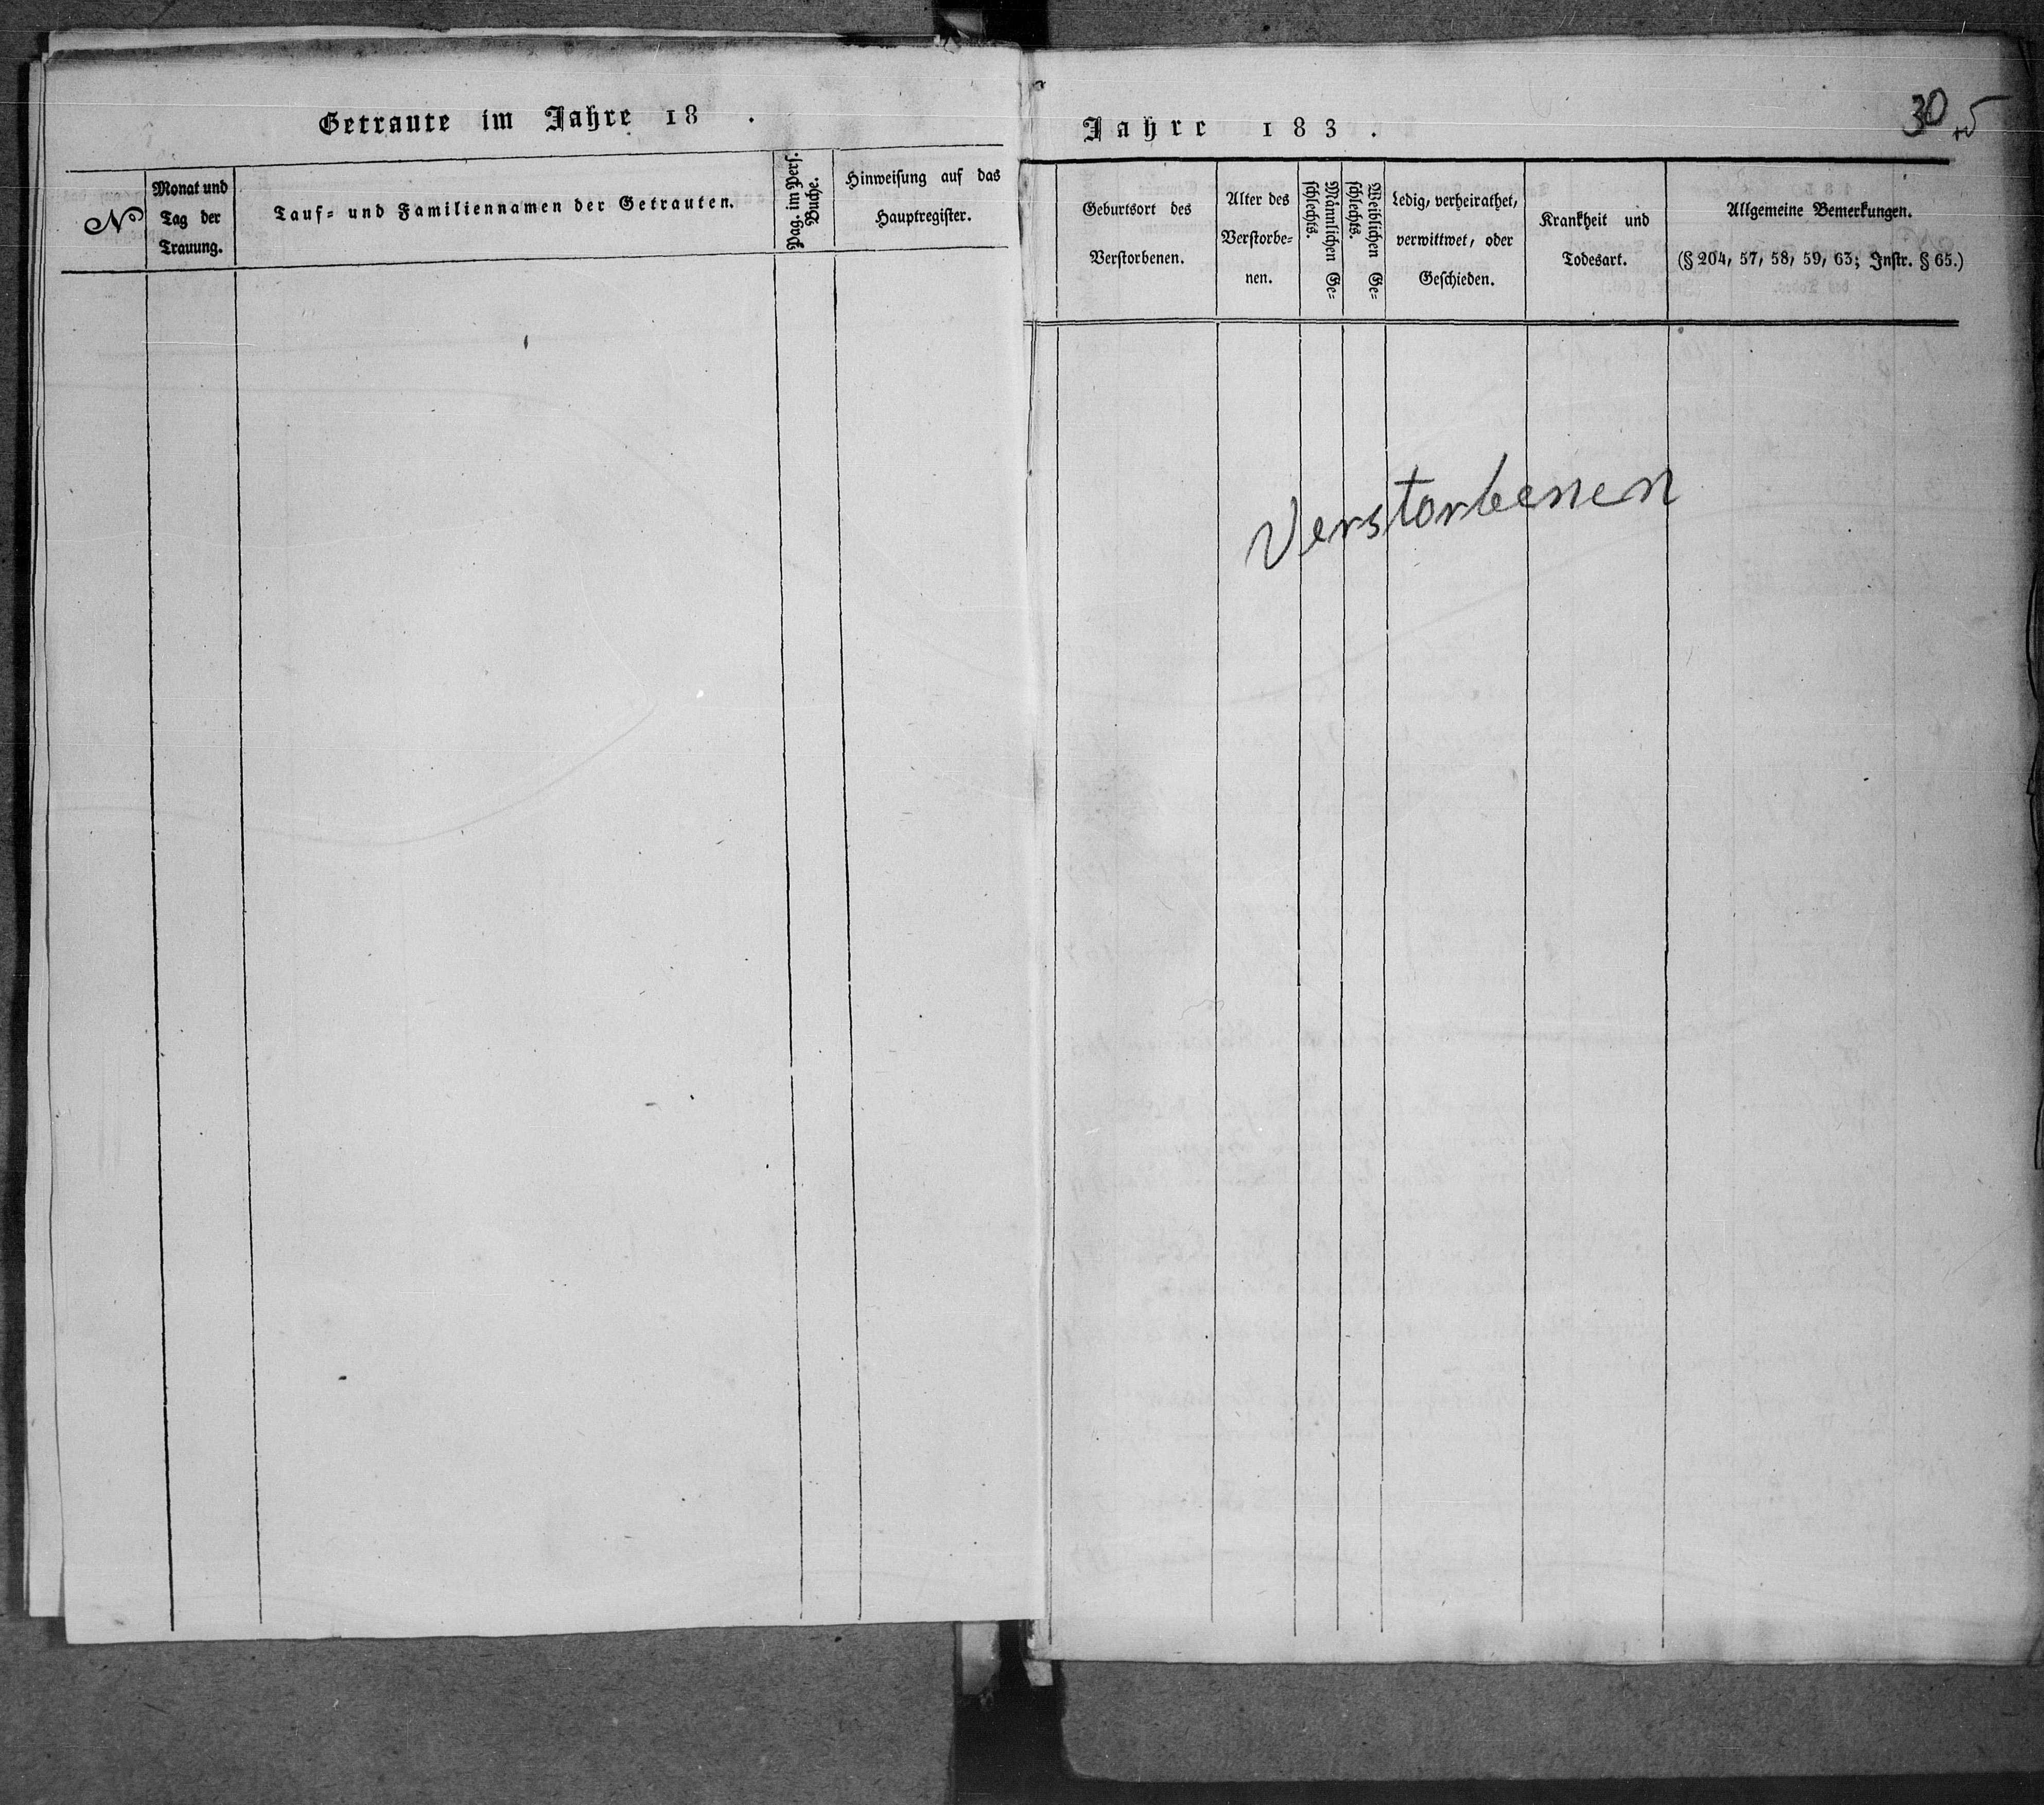 Getraute im Jahre 18 .
N
Monat und
Tag der
Trauung.
Tauf- und Familiennamen der Getrauten.
Pag. im Pers.
Buche.
Hinweisung auf das
Hauptregister.
Jahre 183 .
30
Geburtsort des
Verstorbenen.
Alter des
Verstorbe-
nen.
Männlichen Ge-
schlechts.
Weiblichen Ge-
schlechts.
Ledig, verheirathet,
verwittwet, oder
Geschieden.
Krankheit und
Todesart.
Allgemeine Bemerkungen.
(§ 204, 57, 58, 59, 63; Instr. § 65.)
Verstorbenen